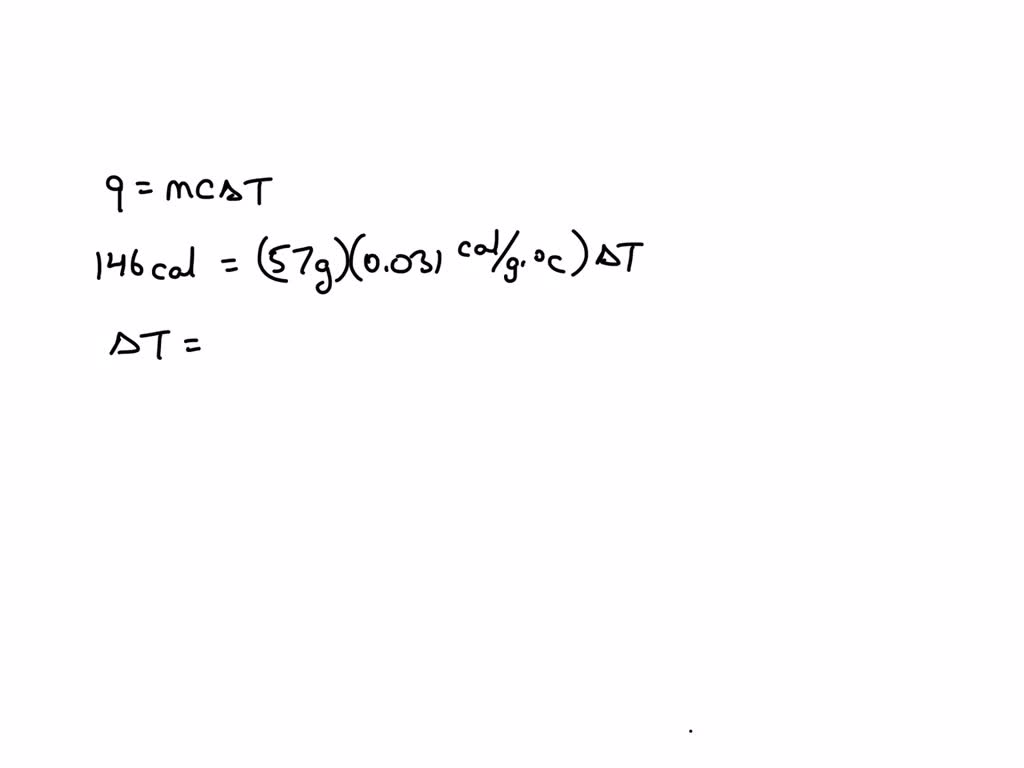 q = mcΔT
146 cal = (57g)(0.031 cal/g.°C) ΔT
ΔT =